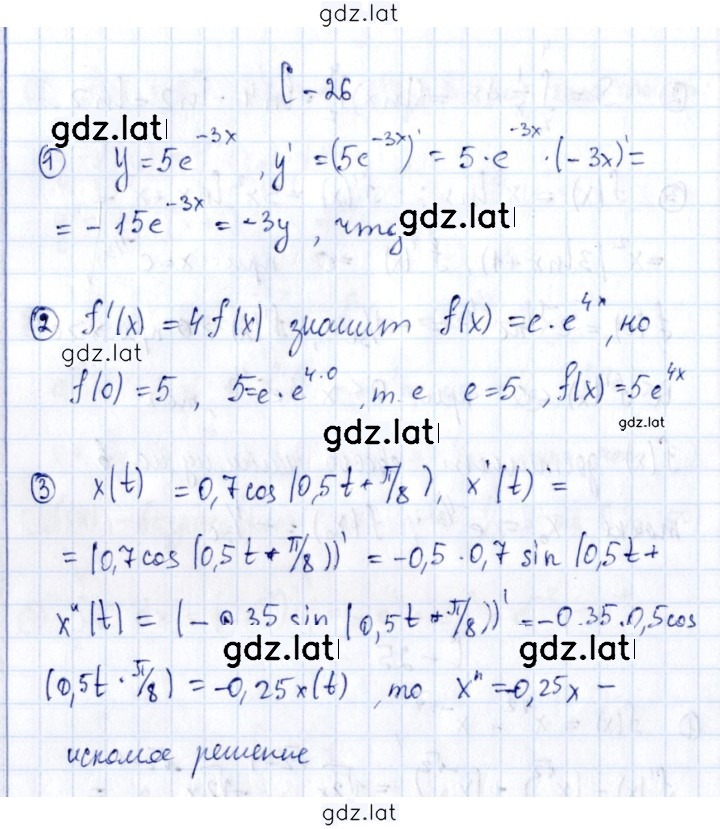 gdz.lat
C-26
gdz.lat
① y = 5e^{-3x}, y' = (5e^{-3x})' = 5 · e^{-3x} · (-3x)' =
= -15e^{-3x} = -3y, чтд
gdz.lat
② f'(x) = 4f(x) значит f(x) = c · e^{4x}, но
gdz.lat
f(0) = 5, 5 = c · e^{4·0}, т. е c = 5, f(x) = 5e^{4x}
gdz.lat
gdz.lat
③ x(t) = 0,7cos(0,5t + π/8), x'(t) =
= (0,7cos(0,5t + π/8))' = -0,5 · 0,7 sin(0,5t +
x"(t) = (-0 35 sin(0,5t + π/8))' = -0.35.0,5cos
gdz.lat gdz.lat
(0,5t · π/8) = -0,25x(t), то x" = -0,25x -
искомое решение
gdz.lat